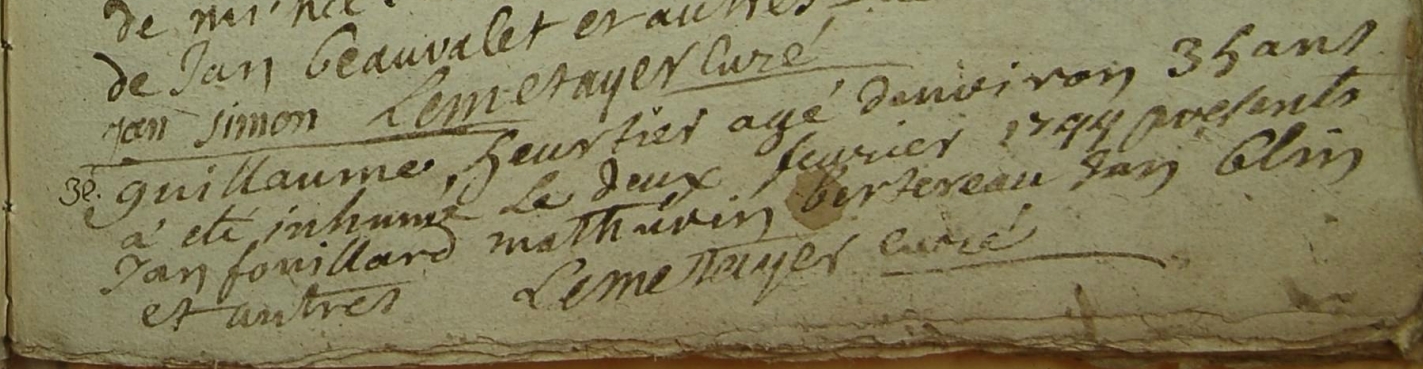 de
de Jan beauvalet et autres
jan simon Lemetayer Curé
3e. guillaume heurtier agé denviron 35 ans
a eté inhumé Le deux fevrier 1744 presents
Jan fouillard mathurin bertereau Jan blin
et autres Lemetayer curé